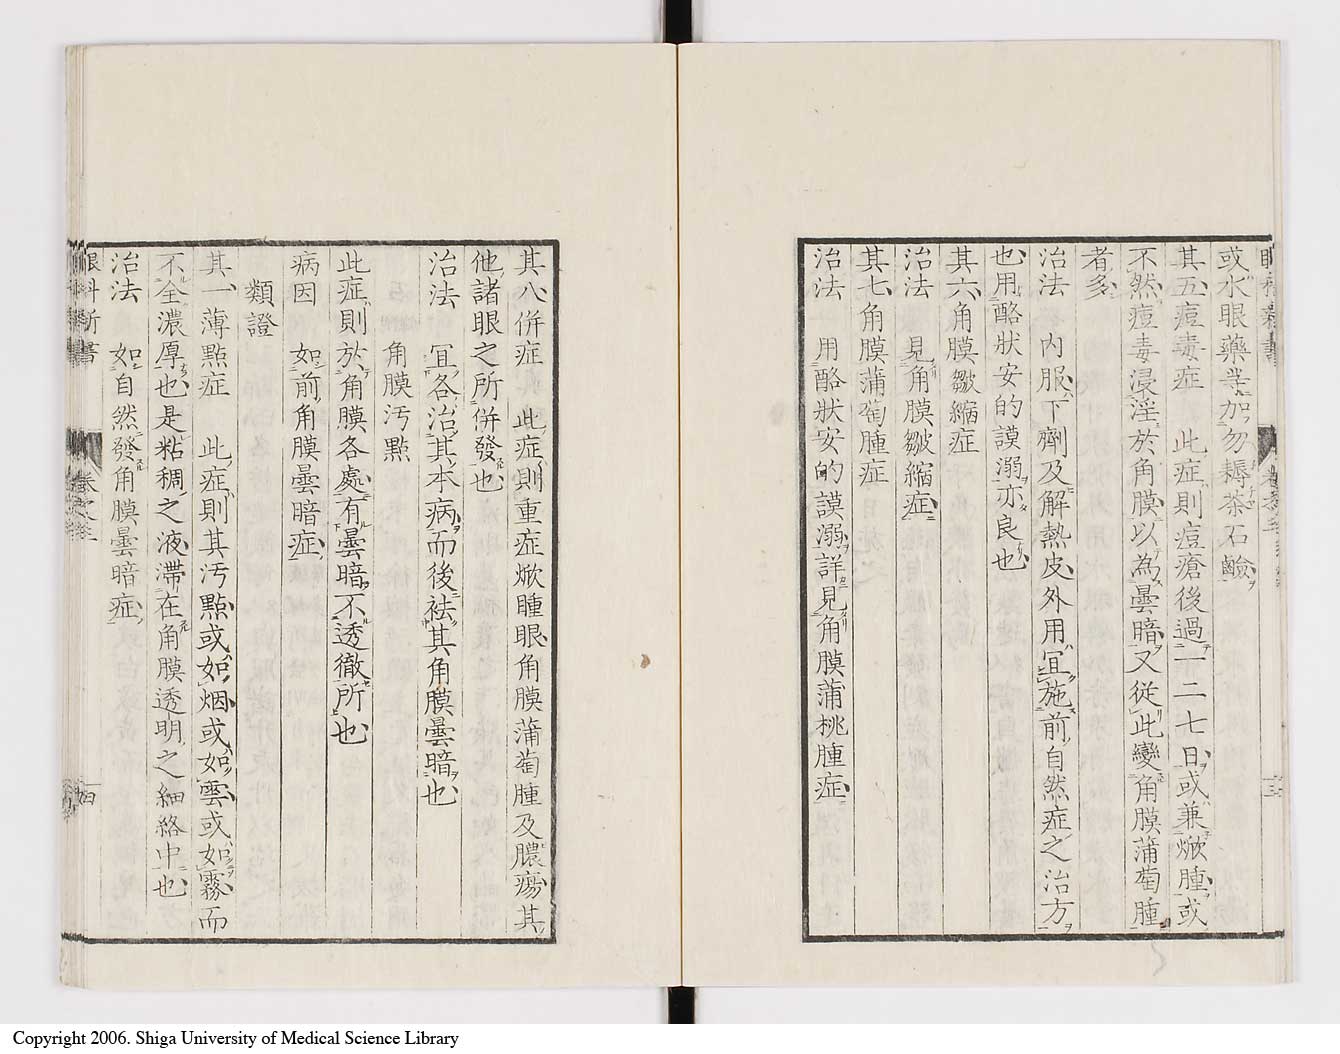 或水眼藥等加勿耨茶石鹼
其五痘毒症　此症則痘瘡後過一二七日或兼焮腫或
不然痘毒浸淫於角膜以為曇暗又從此變角膜蒲萄腫
者多
治法　內服下劑及解熱皮外用宜施前自然症之治方
也用酪狀安的謨溺亦良也
其六角膜皺縮症
治法　見角膜皺縮症
其七角膜蒲萄腫症
治法　用酪狀安的謨溺詳見角膜蒲桃腫症
其八併症　此症則重症焮腫眼角膜蒲萄腫及膿瘍其
他諸眼之所併發也
治法　宜各治其本病而後袪其角膜曇暗也
角膜汚點
此症則於角膜各處有曇暗不透徹所也
病因　如前角膜曇暗症
類證
其一薄點症　此症則其汚點或如烟或如雲或如霧而
不全濃厚也是粘稠之液滯在角膜透明之細絡中也
治法　如自然發角膜曇暗症
眼科新書
Copyright 2006. Shiga University of Medical Science Library